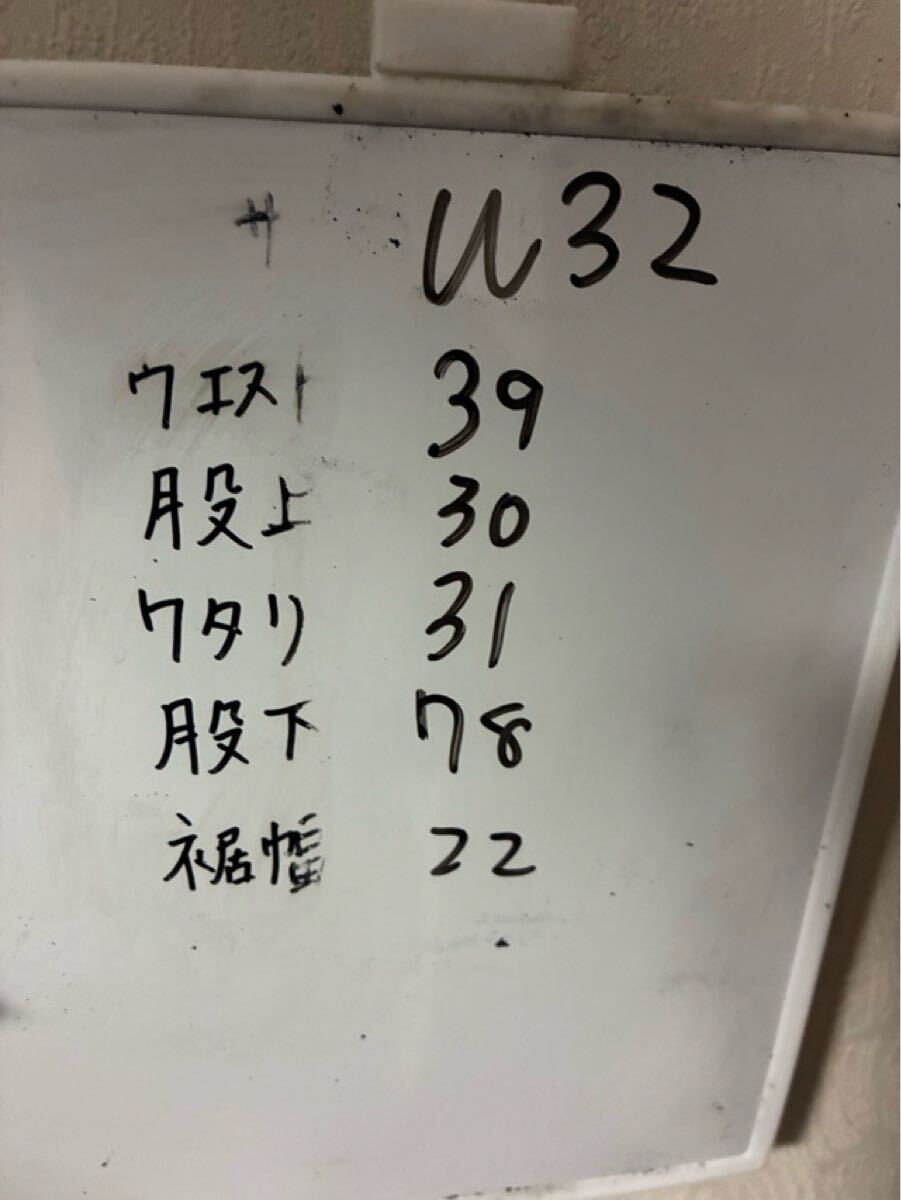 サ W32
ウエスト 39
股上 30
ワタリ 31
股下 78
裾幅 22